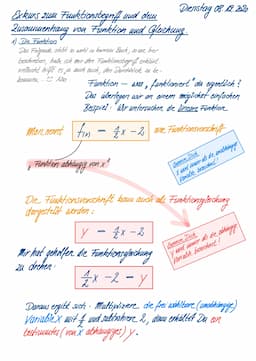 Dienstag 08.12.2020
Exkurs zum Funktionsbegriff und dem
Zusammenhang von Funktion und Gleichung
1) Die Funktion
Das Folgende steht so wohl in keinem Buch, so wie hier
beschrieben, habe ich mir den Funktionsbegriff erklärt
vielleicht hilft es ja auch euch, den Überblick zu be-
kommen.
Funktion – was "funktioniert" da eigentlich?
Das überlegen wir an einem möglichst einfachen
Beispiel: Wir untersuchen die lineare Funktion.
Man nennt f(x) = 1/2 x - 2 die Funktionsvorschrift
"Funktion abhängig von x"
Die Funktionsvorschrift kann auch als Funktionsgleichung
dargestellt werden:
y = 1/2 x - 2
Mir hat geholfen die Gleichung
zu drehen:
1/2 x - 2 = y
Daraus ergibt sich: Multipliziere die frei wählbare (unabhängige)
Variable x mit 1/2 und subtrahiere 2, dann erhältst Du ein
bestimmtes (von x abhängiges) y.